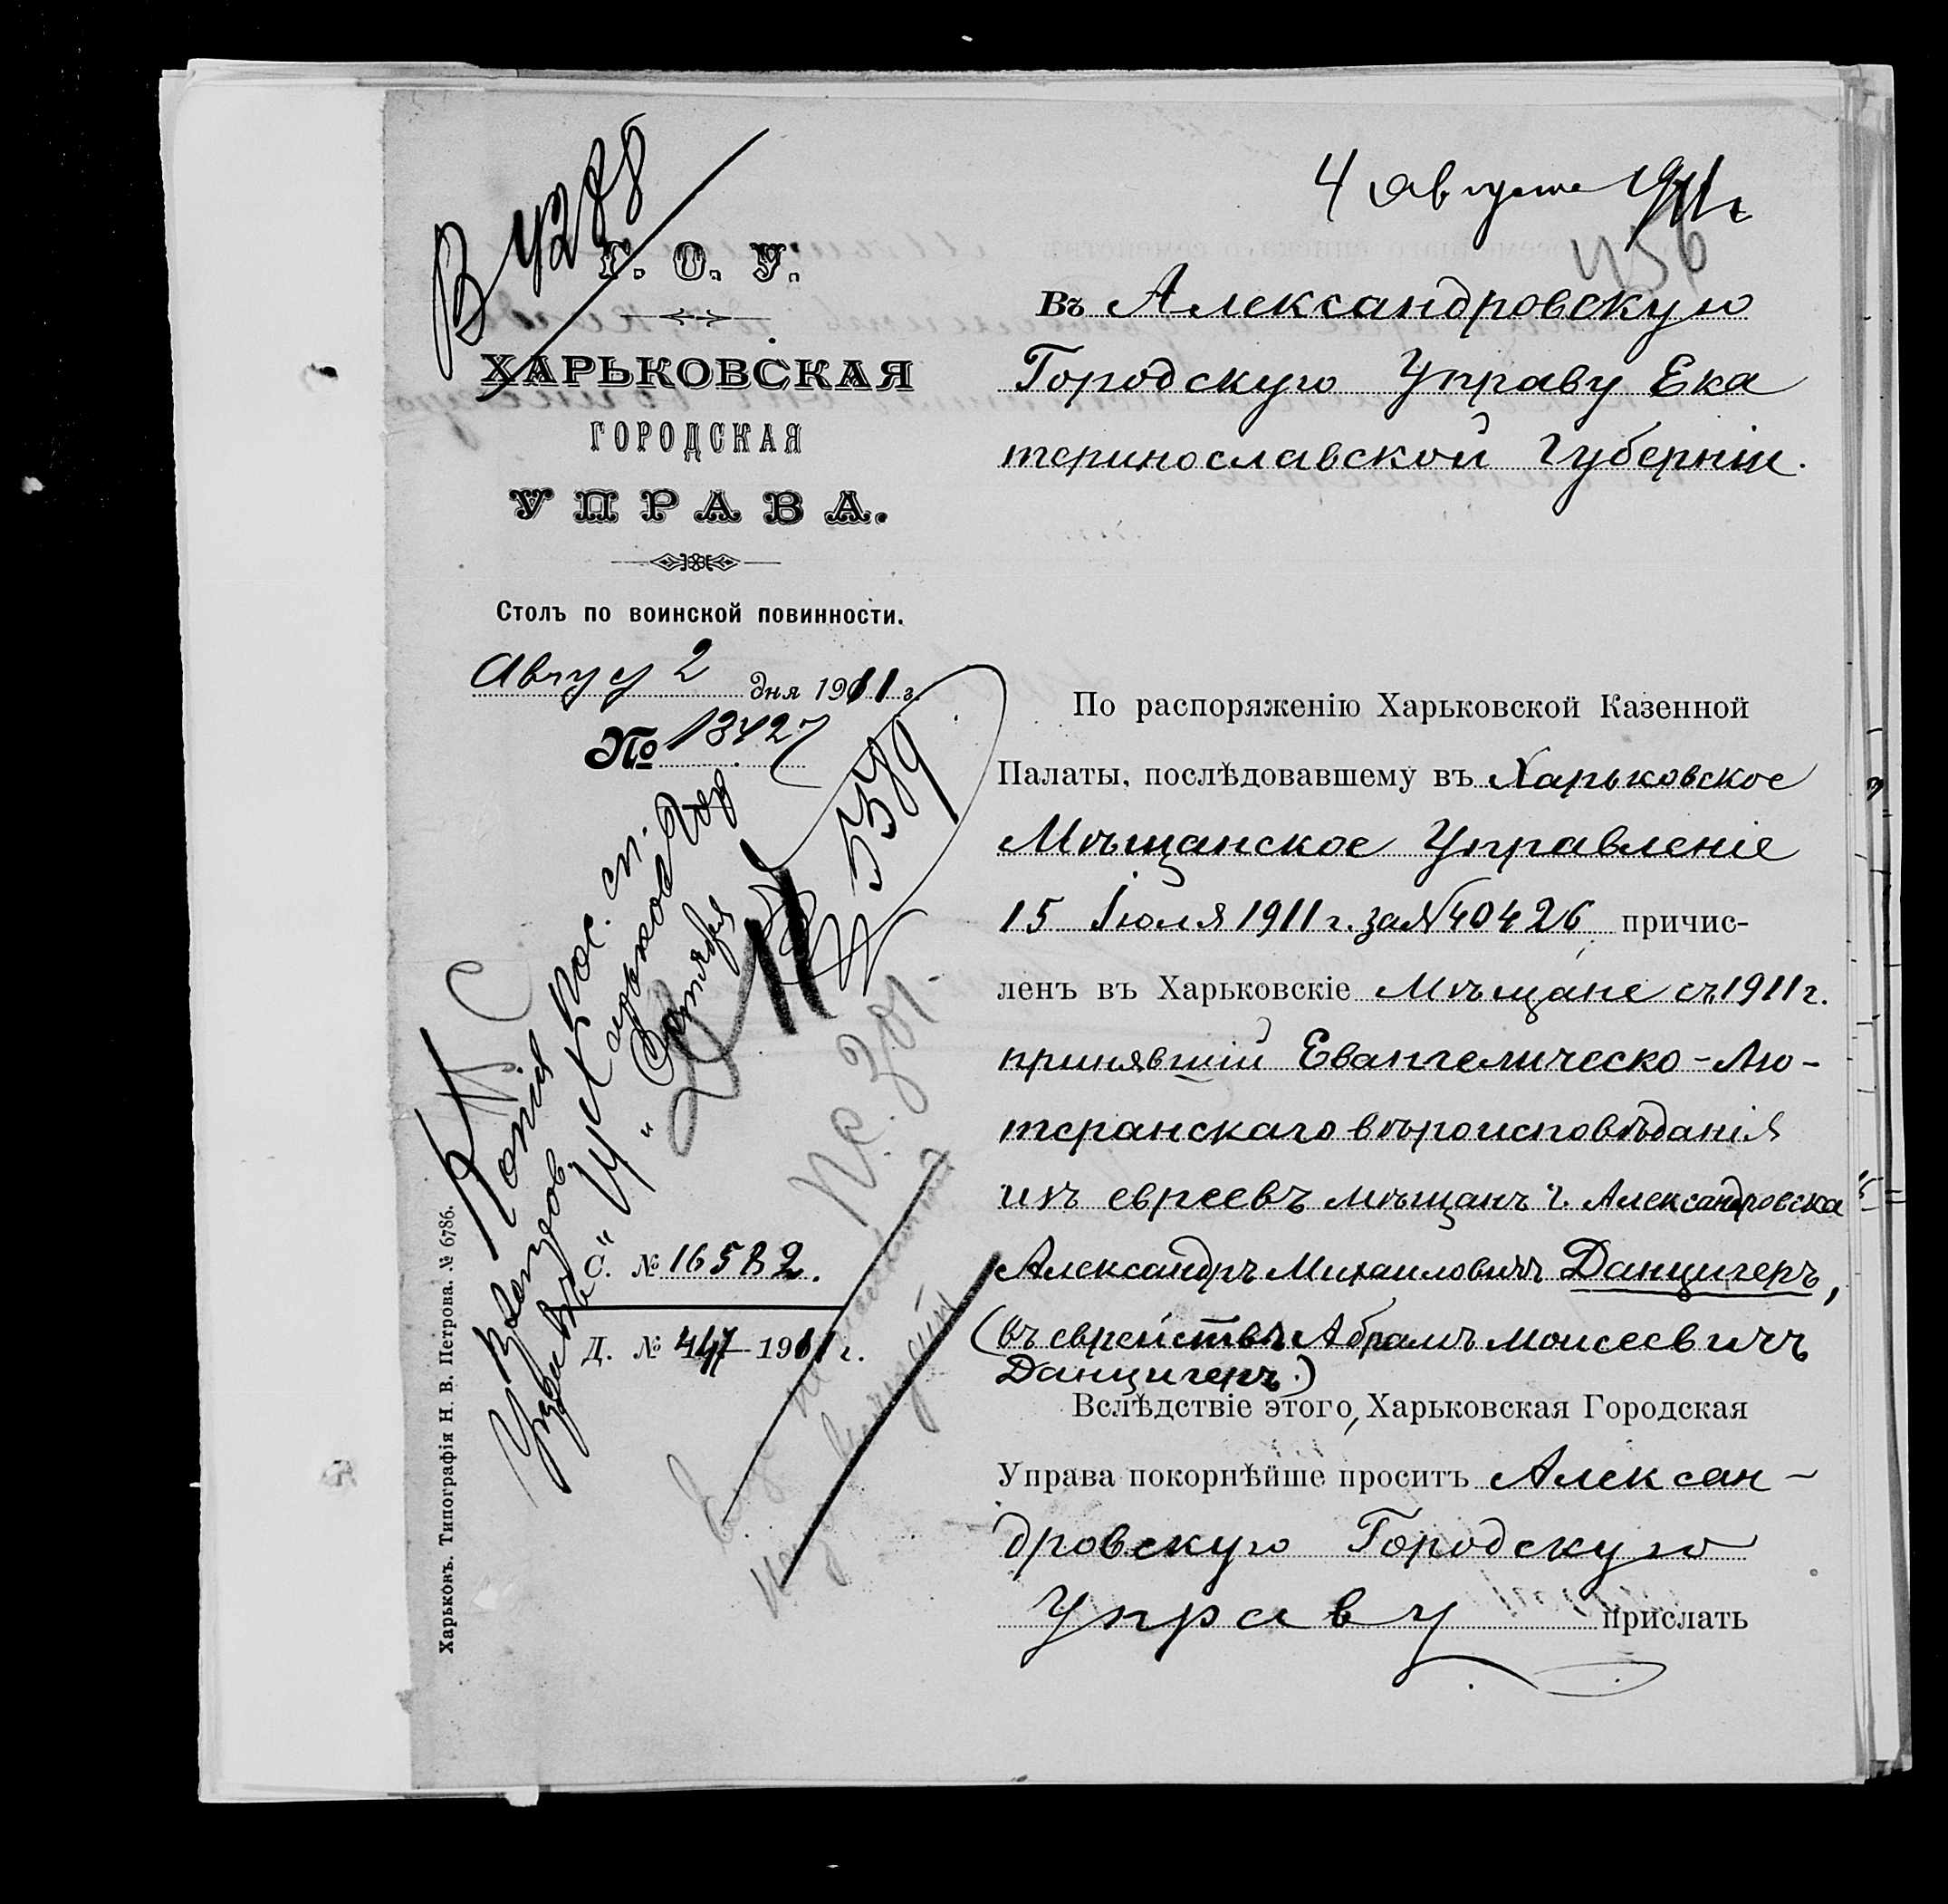 В 4288
Г. О. У.
ХАРЬКОВСКАЯ
ГОРОДСКАЯ
УПРАВА.
Столъ по воинской повинности.
Авгус 2 дня 1911 г.
№ 13427
5389
Копія пос. сп.
С. № 16582.
Д. № 447 1911 г.
Харьковъ. Типографія Н. В. Петрова. № 6786.
4 августа 1911 г
456
Въ Александровскую
Городскую Управу Ека
теринославской Губерніи.
По распоряженію Харьковской Казенной
Палаты, послѣдовавшему въ Харьковское
Мѣщанское Управленіе
15 Іюля 1911 г. за № 40426 причис-
ленъ въ Харьковскіе Мѣщане съ 1911 г.
принявшій Евангелическо-Лю-
теранскаго вѣроисповѣданія
изъ евреевъ мѣщанъ г. Александровска
Александръ Михаиловичъ Данцигеръ,
(въ еврействѣ Абрамъ Моисеевичъ
Данцигеръ.)
Вслѣдствіе этого, Харьковская Городская
Управа покорнѣйше проситъ Алексан-
дровскую Городскую
Управу прислать